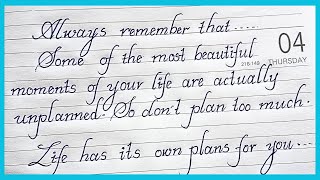 Always remember that.....
Some of the most beautiful
04
218-148
THURSDAY
moments of your life are actually
unplanned. So don't plan too much.
Life has its own plans for you...